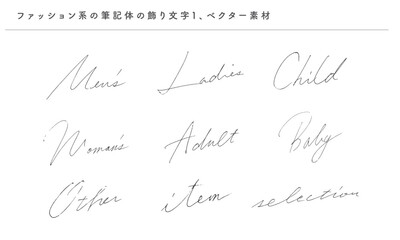 ファッション系の筆記体の飾り文字1、ベクター素材
Men's Ladies Child
Woman's Adult Baby
Other item selection